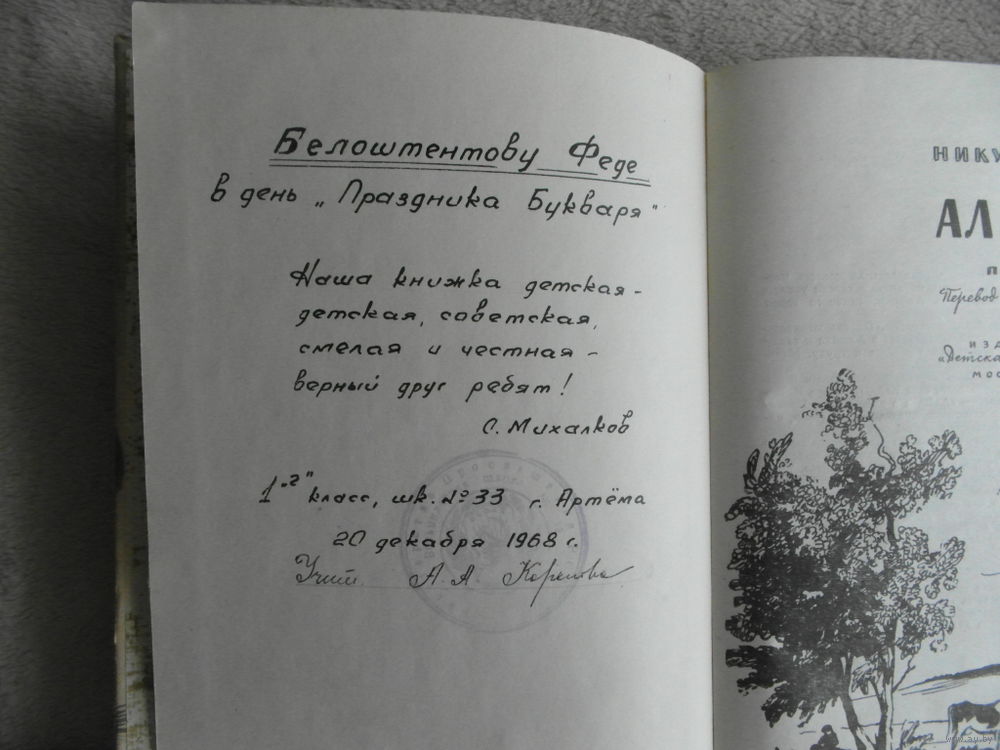 Белоштентову Феде
в день „Праздника Букваря"
Наша книжка детская -
детская, советская,
смелая и честная -
верный друг ребят!
С. Михалков
1 „г" класс, шк. №33 г. Артёма
20 декабря 1968 г.
Учит. А. А.
НИКУ
АЛ
П
Перевод
ИЗД
«Детска
МОС